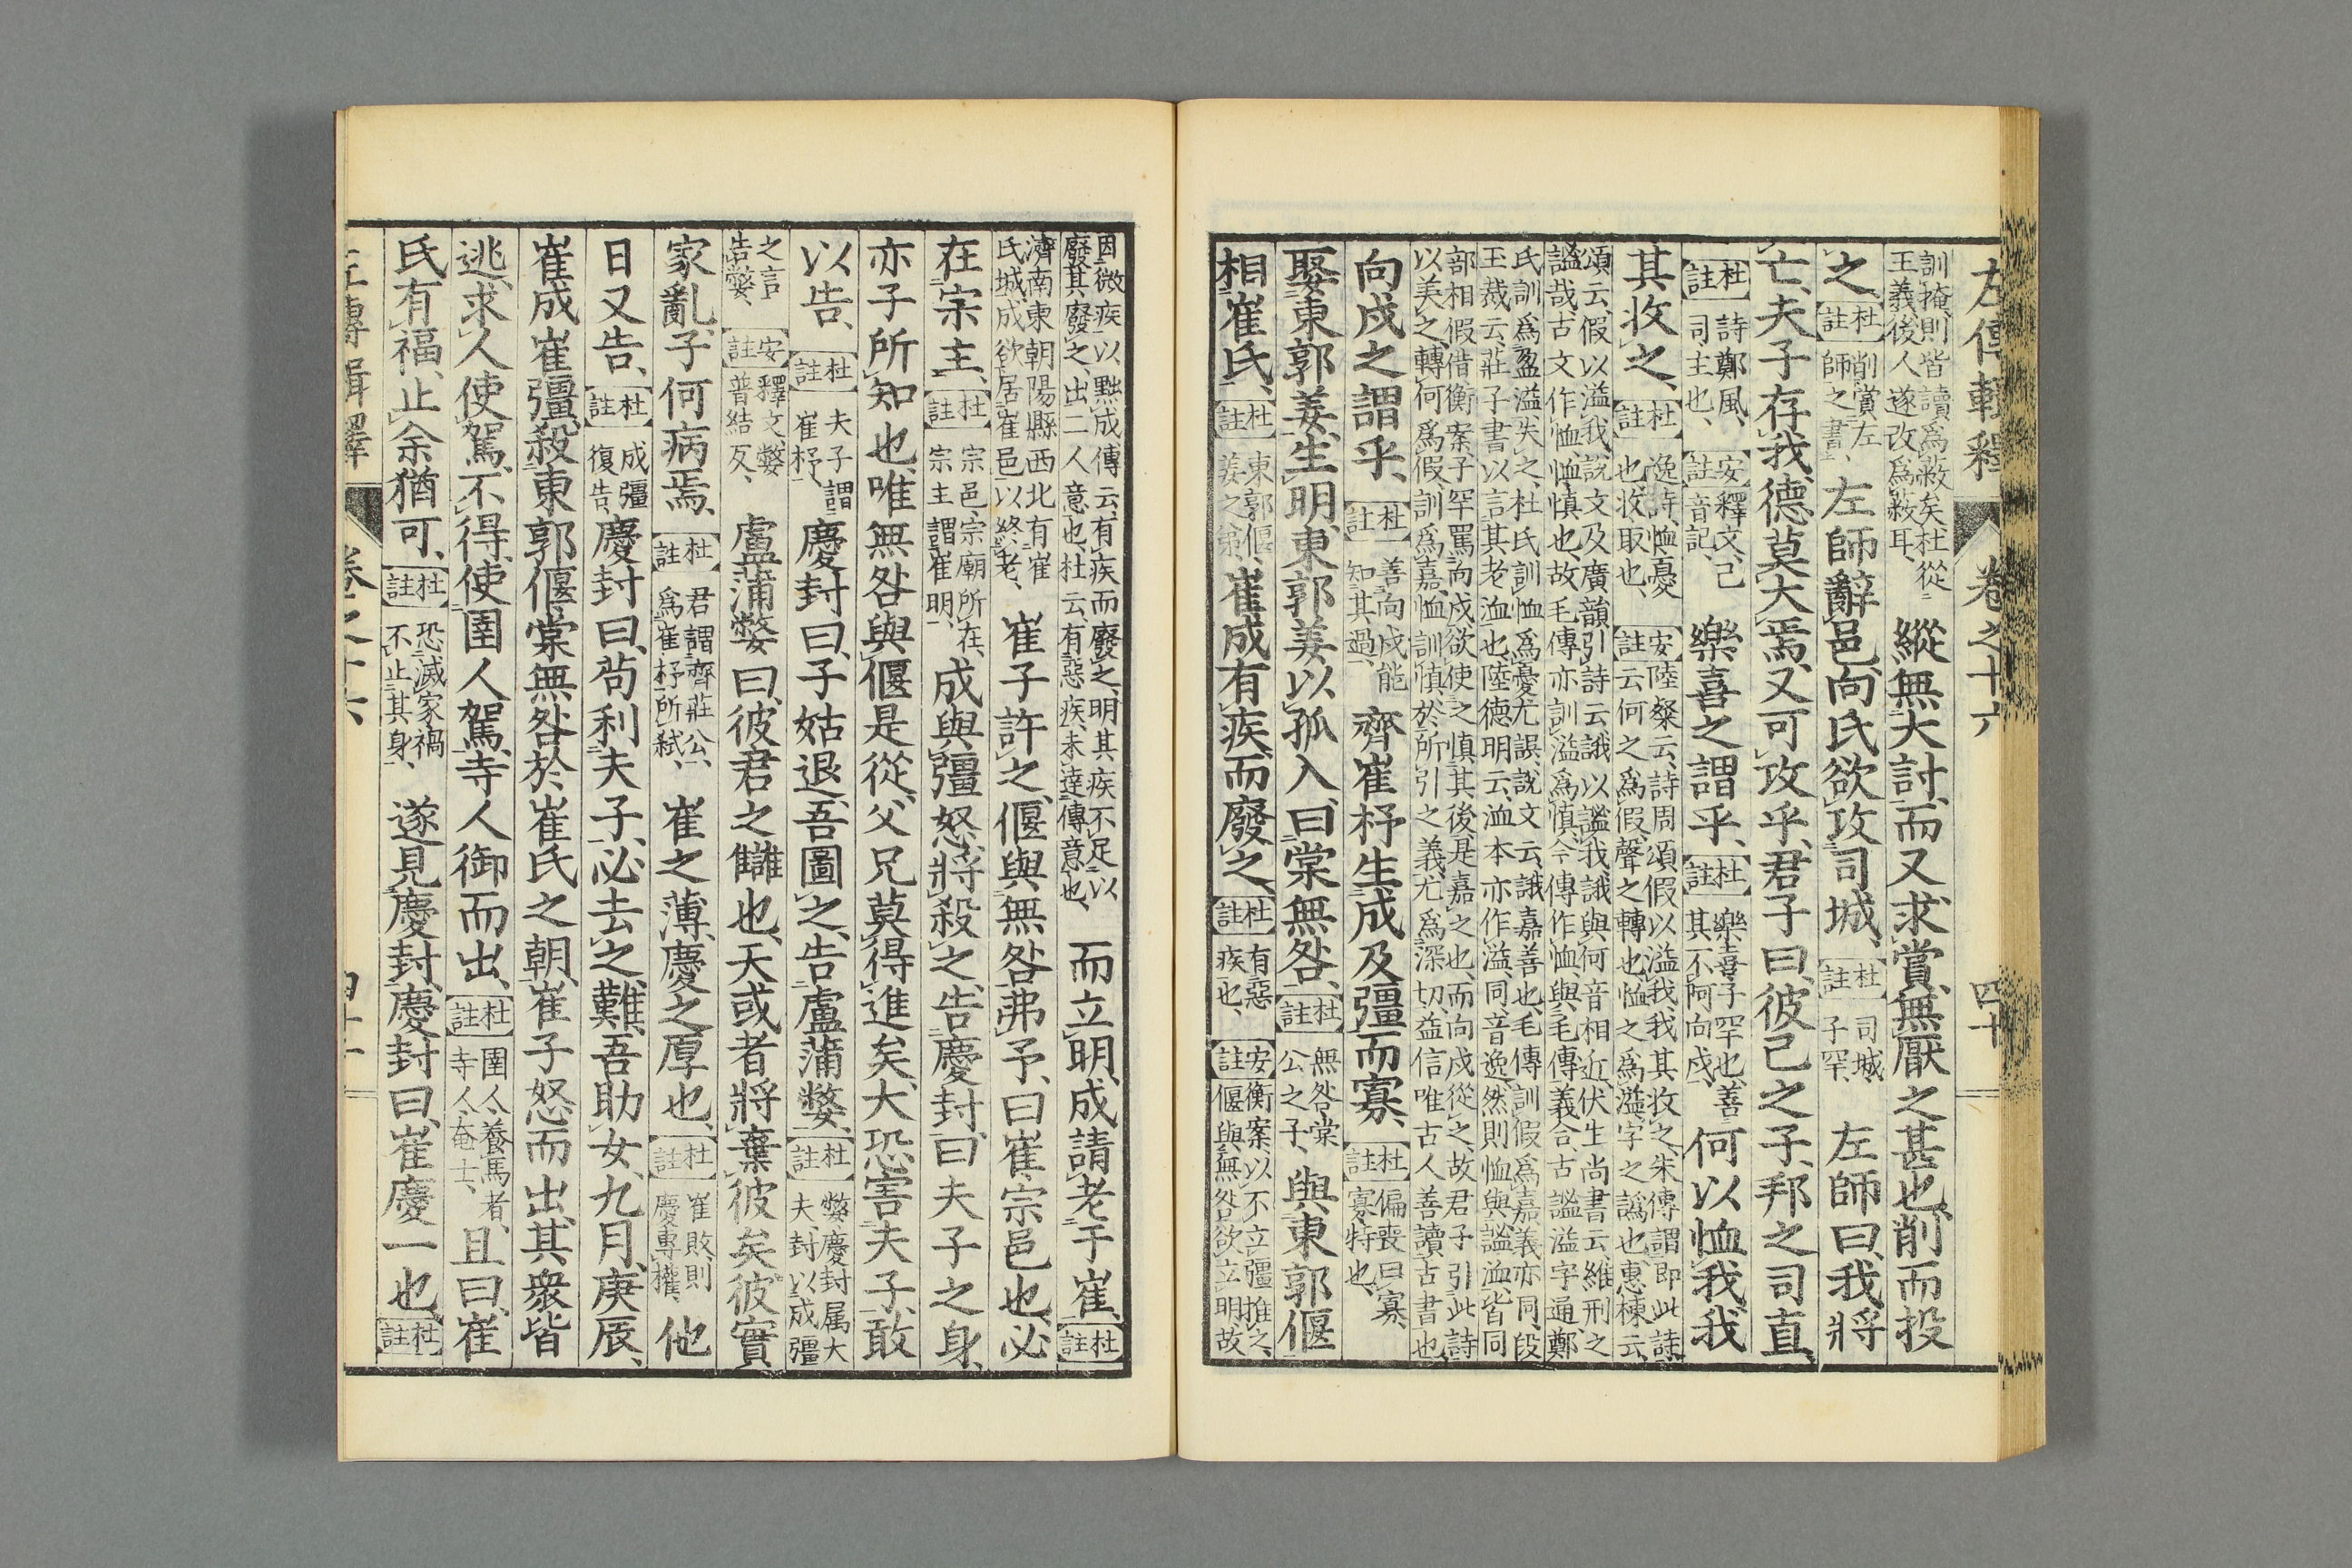 左傳輯釋 卷之十六 四十
訓掩、則皆讀爲蔽矣、杜從王義、後人遂改爲蔽耳、縱無大討、而又求賞、無厭之甚也、削而投
之、【杜註】削賞左師之書、左師辭邑、向氏欲攻司城、【杜註】司城、子罕、左師曰、我將
亡、夫子存我、德莫大焉、又可攻乎、君子曰、彼己之子、邦之司直、
【杜註】詩鄭風、司主也、【安註】釋文、己音記、樂喜之謂乎、【杜註】樂喜、子罕也、善其不阿向戌、何以恤我、我
其收之、【杜註】逸詩、恤憂也、收、取也、【安註】陸粲云、詩周頌假以溢我、我其收之、朱傳謂即此詩云、何之爲假、聲之轉也、恤之爲溢、字之譌也、惠棟云、
頌云、假以溢我、說文及廣韻引詩云、誐以謐我、誐與何音相近、伏生尚書云、維刑之謐哉、古文作恤、恤慎也、故毛傳亦訓溢爲慎、今傳作恤、與毛傳義合、古謐溢字通、鄭
氏訓爲盈溢、失之、杜氏訓恤爲憂尤誤、說文云、誐嘉善也、毛傳訓假爲嘉、義亦同、段玉裁云、莊子書以言其老洫也、陸德明云、洫本亦作溢、同、音逸、然則恤與謐洫、皆同
部相假借、衡案、子罕罵向戌、欲使之慎其後、是嘉之也、而向戌從之、故君子引此詩以美之、轉何爲假、訓爲嘉、恤訓慎、於所引之義、尤爲深切、益信唯古人善讀古書也、
向戌之謂乎、【杜註】善向戌能知其過、齊崔杼生成及彊而寡、【杜註】偏喪曰寡、寡、特也、
娶東郭姜、生明、東郭姜以孤入、曰棠無咎、【杜註】無咎、棠公之子、與東郭偃
相崔氏、【杜註】東郭偃、姜之弟、崔成有疾、而廢之、【杜註】有惡疾也、【安註】衡案、以不立彊推之、偃與無咎欲立明、故
因微疾以黜成、傳云、有疾而廢之、明其疾不足以廢、其廢之、出二人意也、杜云、有惡疾、未達傳意也、而立明、成請老于崔、【杜註】
濟南東朝陽縣西北有崔氏城、成欲居崔邑以終老、崔子許之、偃與無咎弗予、曰崔、宗邑也、必
在宗主、【杜註】宗邑、宗廟所在、宗主謂崔明、成與彊怒、將殺之、告慶封曰、夫子之身、
亦子所知也、唯無咎與偃是從、父兄莫得進矣、大恐害夫子、敢
以告、【杜註】夫子謂崔杼、慶封曰、子姑退、吾圖之、告盧蒲嫳、【杜註】嫳、慶封属大夫、封以成彊
之言告嫳、【安註】釋文、嫳普結反、盧蒲嫳曰、彼君之讎也、天或者將棄彼矣、彼實
家亂、子何病焉、【杜註】君謂齊莊公、爲崔杼所弑、崔之薄、慶之厚也、【杜註】崔敗、則慶專權、他
日又告、【杜註】成彊復告、慶封曰、苟利夫子、必去之、難、吾助女、九月、庚辰、
崔成崔彊、殺東郭偃、棠無咎於崔氏之朝、崔子怒而出、其衆皆
逃、求人使駕、不得、使圉人駕、寺人御而出、【杜註】圉人、養馬者、寺人、奄士、且曰、崔
氏有福、止余猶可、【杜註】恐滅家禍不止其身、遂見慶封、慶封曰、崔慶一也、【杜註】
左傳輯釋 卷之十六 四十一